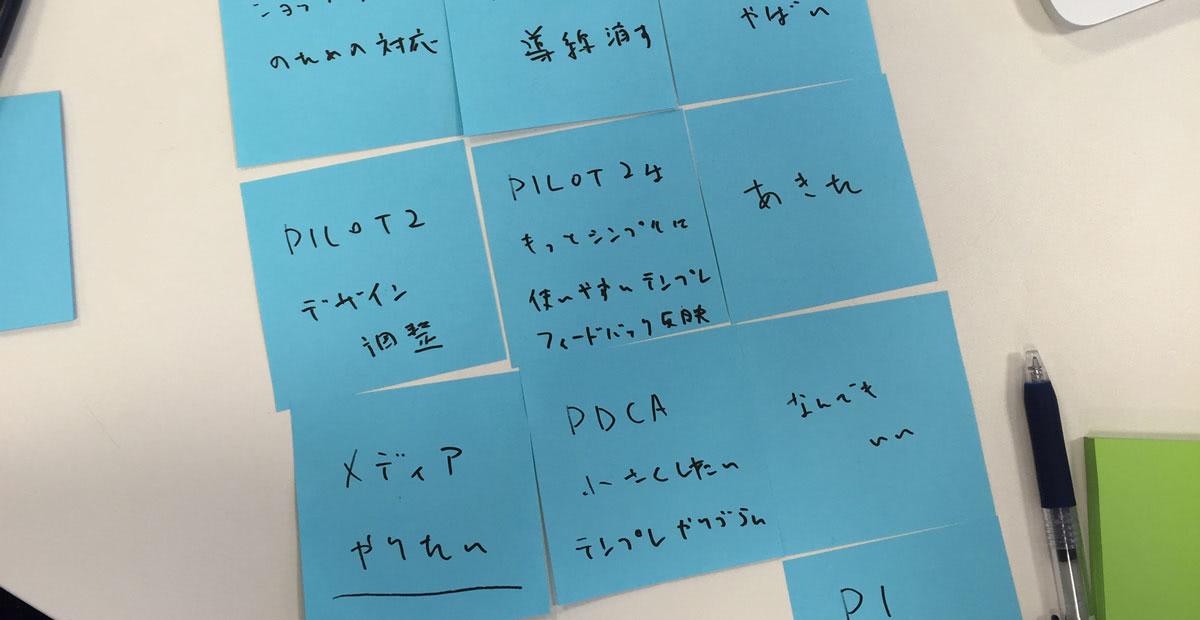 のための対応
導線消す
やばい
PILOT2
デザイン
調整
PILOT 2は
もっとシンプルに
使いやすいテンプレ
フィードバック反映
あきた
メディア
やりたい
PDCA
小さくしたい
テンプレやりづらい
なんでも
いい
PI